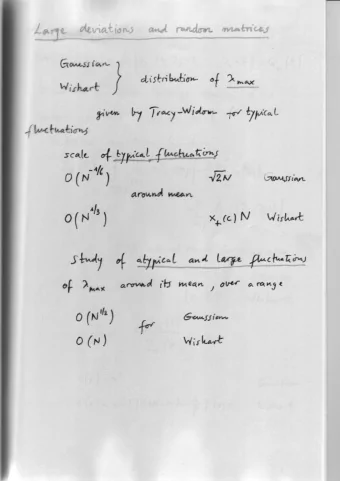 Large deviations and random matrices
Gaussian
Wishart } distribution of λmax
given by Tracy-Widom for typical
fluctuations
scale of typical fluctuations
O(N^-1/6) √2N Gaussian
around mean
O(N^1/3) x+(c) N Wishart
Study of atypical and large fluctuations
of λmax around its mean, over a range
O(N^1/2) for Gaussian
O(N) Wishart